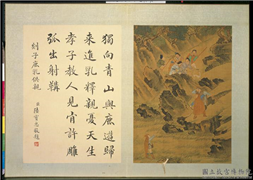 獨向青山與鹿遊歸
來進乳釋親憂天生
孝子教人見肯許雕
弧出射韝
剡子鹿乳供親
敬題
國立故宮博物院